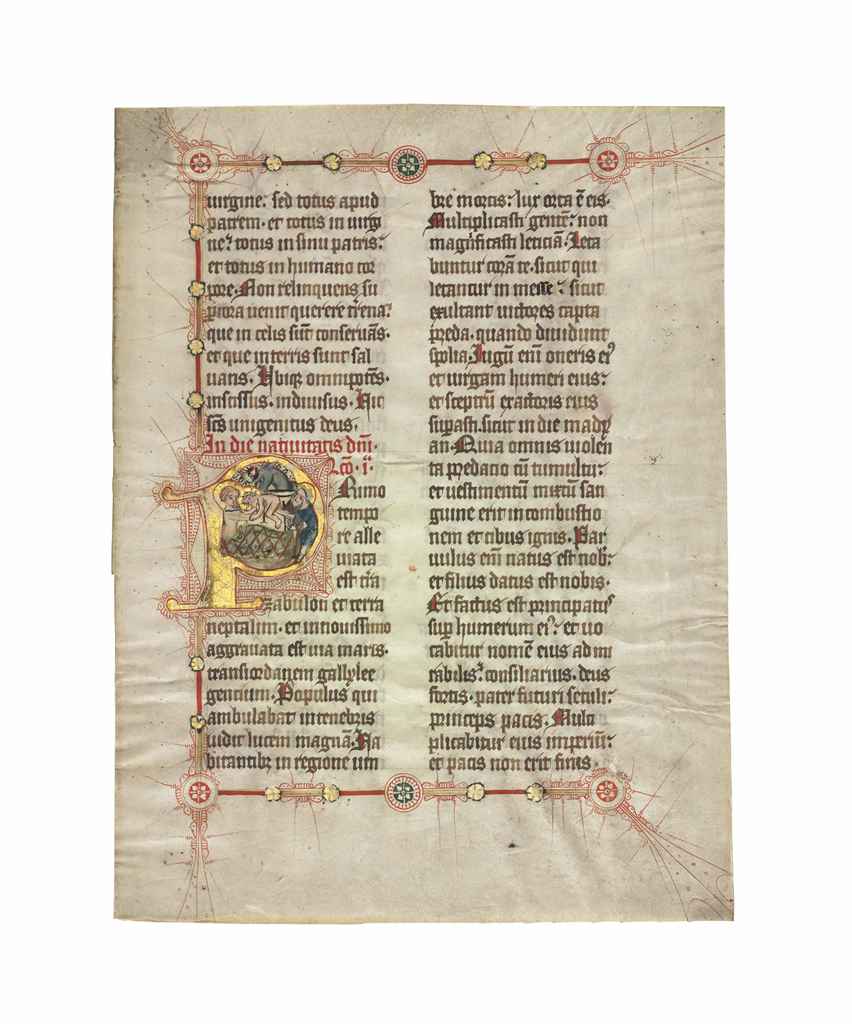 uirgine: sed totus apud
patrem· et totus in uirg
ne: totus in sinu patris:
et totus in humano cor
pore· Non relinquens su
piora uenit querere t̄rena:
que in celis sūt conseruās·
et que in terris sunt sal
uaris. Vbiqꝫ omnipotēs·
inscissus· indiuisus· Hic
sc̄s unigenitus deus.
In die natiuitatis dn̄i·
Lc̄o · i·
Primo
tempo
re alle
uiata
est t̄ra
zabulon et terra
neptalim· et in nouissimo
aggrauata est uia maris·
transiordanem gallylee
gencium· Populus qui
ambulabat in tenebris
uidit lucem magnā· Ha
bitantibꝫ in regione um
bre mortis: lux orta ē eis·
Multiplicasti gentē: non
magnificasti leticiā· Leta
buntur corā te· sicut qui
letantur in messe: sicut
exultant uictores capta
preda· quando diuidunt
spolia· Iugū enī oneris eiꝰ
et uirgam humeri eius:
et sceptrū exactoris eius
supasti· sicut in die madi
an· Quia omnis uiolen
ta predacio cū tumultu:
et uestimentū mixtū san
guine erit in combustio
nem et cibus ignis· Par
uulus enī natus est nob̄:
et filius datus est nobis·
Et factus est principatꝰ
sup humerum eiꝰ: et uo
cabitur nomē eius admi
rabilis: consiliarius· deus
fortis· pater futuri seculi:
princeps pacis· Multi
plicabitur eius imperiū:
et pacis non erit finis·